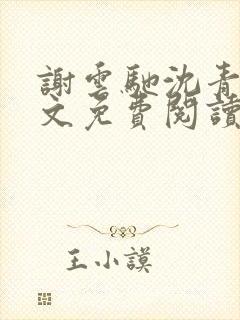 謝雲馳沈青
文免費閱讀
王小謨